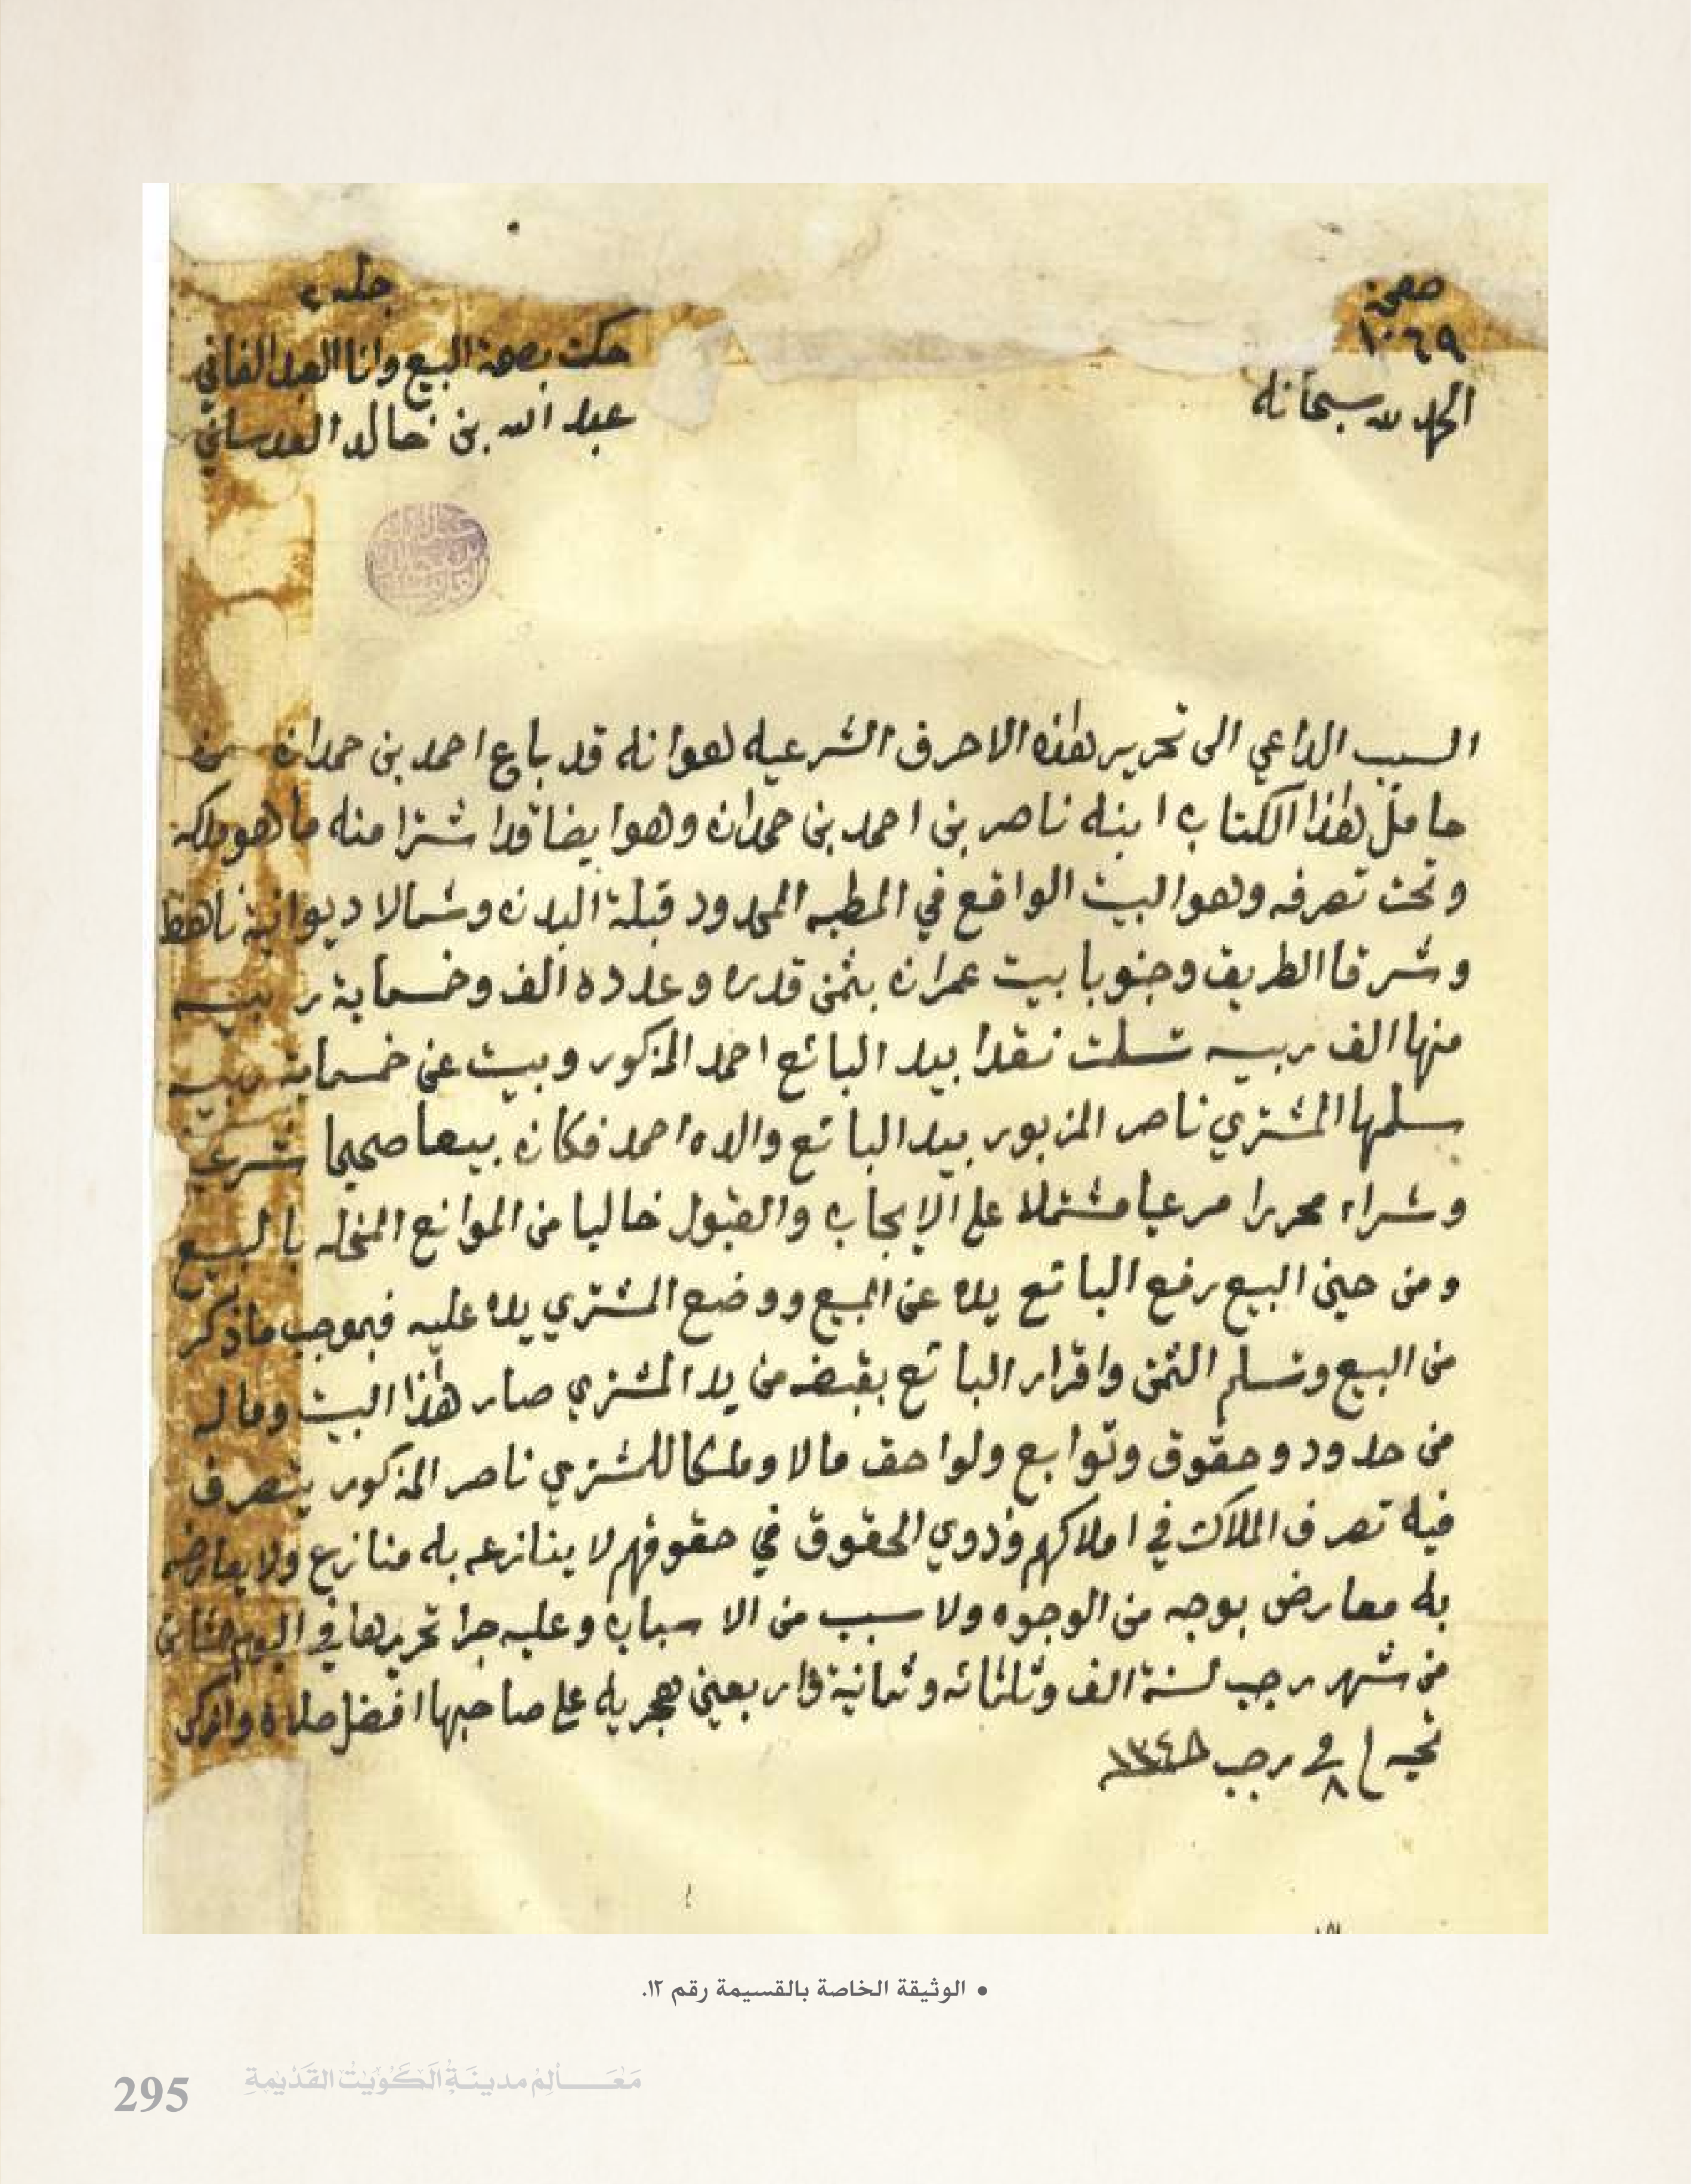 صفحة
١٠٦٩
جلد ٢
الحمد لله سبحانه
حكمت بصحة البيع وانا العبد الفاني
عبد الله بن خالد العدساني
السبب الداعي الى تحرير هذه الاحرف الشرعيه هو انه قد باع احمد بن حمدان من
حامل هذا الكتاب ابنه ناصر بن احمد بن حمدان وهو ايضا قد اشترا منه ما هو ملكه
وتحت تصرفه وهو البيت الواقع في المطبه المحدود قبلة البدن وشمالا ديوانية ناهض
وشرقا الطريق وجنوبا بيت عمران بثمن قدره وعدده الف وخسماية ربيه
منها الف ربيه تسلمت نقدا بيد البائع احمد المذكور وبيت عن خسماية ربيه
سلمها المشتري ناصر المزبور بيد البائع والده احمد فكان بيعا صحيحا شرعيا
وشراء محررا مرعيا مشتملا على الإيجاب والقبول خاليا من الموانع المخله بالبيع
ومن حين البيع رفع البائع يده عن المبيع ووضع المشتري يده عليه فبموجب ما ذكر
من البيع وتسلم الثمن واقرار البائع بقبضه من يد المشتري صار هذا البيت وماله
من حدود وحقوق وتوابع ولواحق مالا وملكا للمشتري ناصر المذكور يتصرف
فيه تصرف الملاك في املاكهم وذوي الحقوق في حقوقهم لا ينازعه به منازع ولا يعارضه
به معارض بوجه من الوجوه ولا سبب من الاسباب وعليه جرا تحريرها في اليوم الثامن
من شهر رجب لسنة الف وثلثمائه وثمانية واربعين هجريه على صاحبها افضل صلاة وازكى
تحيه ٨ في رجب ١٣٤٨
• الوثيقة الخاصة بالقسيمة رقم ١٢.
295 مَعَـالِم مدينَةِ الكُوَيْت القَدْيمةِ